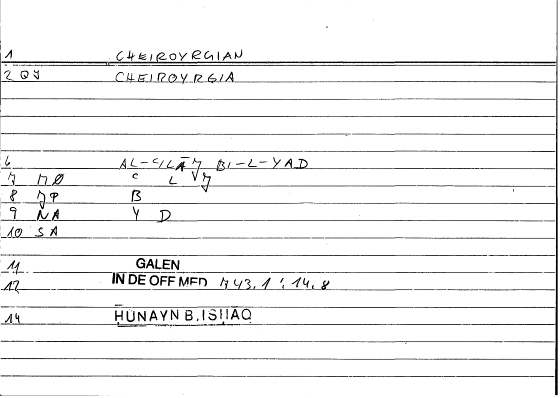 1 CHEIROYRGIAN
2 QY CHEIROYRGIA
6 AL-ʿILĀJ BI-L-YAD
7 MØ ʿ L J
8 JP B
9 NA Y D
10 SA
11 GALEN
12 IN DE OFF MED 743.1 : 14.8
14 ḤUNAYN B. ISḤĀQ